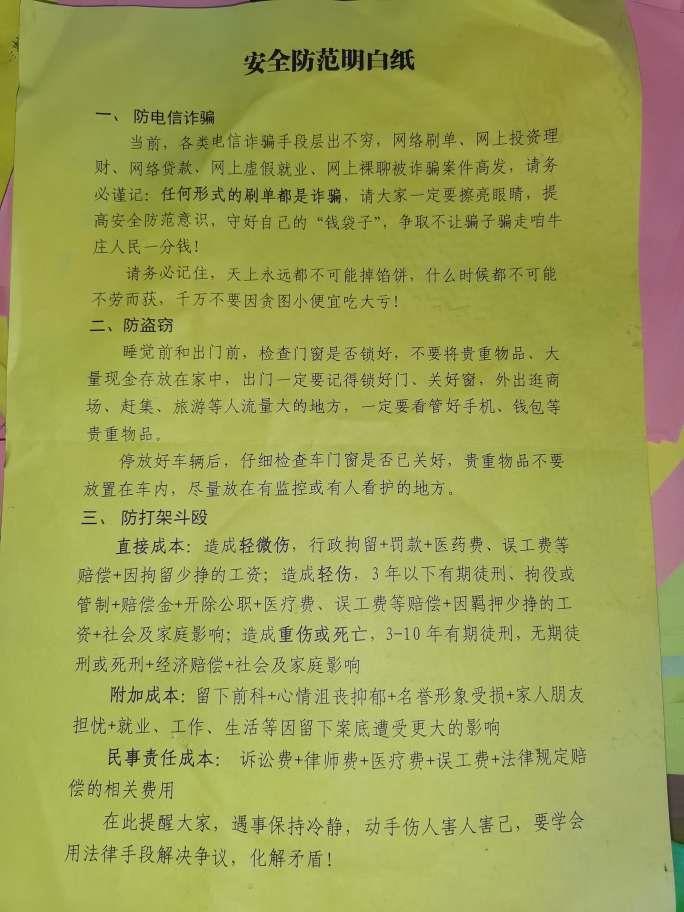 安全防范明白纸
一、 防电信诈骗
当前，各类电信诈骗手段层出不穷，网络刷单、网上投资理
财、网络贷款、网上虚假就业、网上裸聊被诈骗案件高发，请务
必谨记：任何形式的刷单都是诈骗，请大家一定要擦亮眼睛，提
高安全防范意识，守好自己的“钱袋子”，争取不让骗子骗走咱牛
庄人民一分钱！
请务必记住，天上永远都不可能掉馅饼，什么时候都不可能
不劳而获，千万不要因贪图小便宜吃大亏！
二、防盗窃
睡觉前和出门前，检查门窗是否锁好，不要将贵重物品、大
量现金存放在家中，出门一定要记得锁好门、关好窗，外出逛商
场、赶集、旅游等人流量大的地方，一定要看管好手机、钱包等
贵重物品。
停放好车辆后，仔细检查车门窗是否已关好，贵重物品不要
放置在车内，尽量放在有监控或有人看护的地方。
三、 防打架斗殴
直接成本：造成轻微伤，行政拘留+罚款+医药费、误工费等
赔偿+因拘留少挣的工资；造成轻伤，3 年以下有期徒刑、拘役或
管制+赔偿金+开除公职+医疗费、误工费等赔偿+因羁押少挣的工
资+社会及家庭影响；造成重伤或死亡，3-10 年有期徒刑，无期徒
刑或死刑+经济赔偿+社会及家庭影响
附加成本：留下前科+心情沮丧抑郁+名誉形象受损+家人朋友
担忧+就业、工作、生活等因留下案底遭受更大的影响
民事责任成本： 诉讼费+律师费+医疗费+误工费+法律规定赔
偿的相关费用
在此提醒大家，遇事保持冷静，动手伤人害人害己，要学会
用法律手段解决争议，化解矛盾！